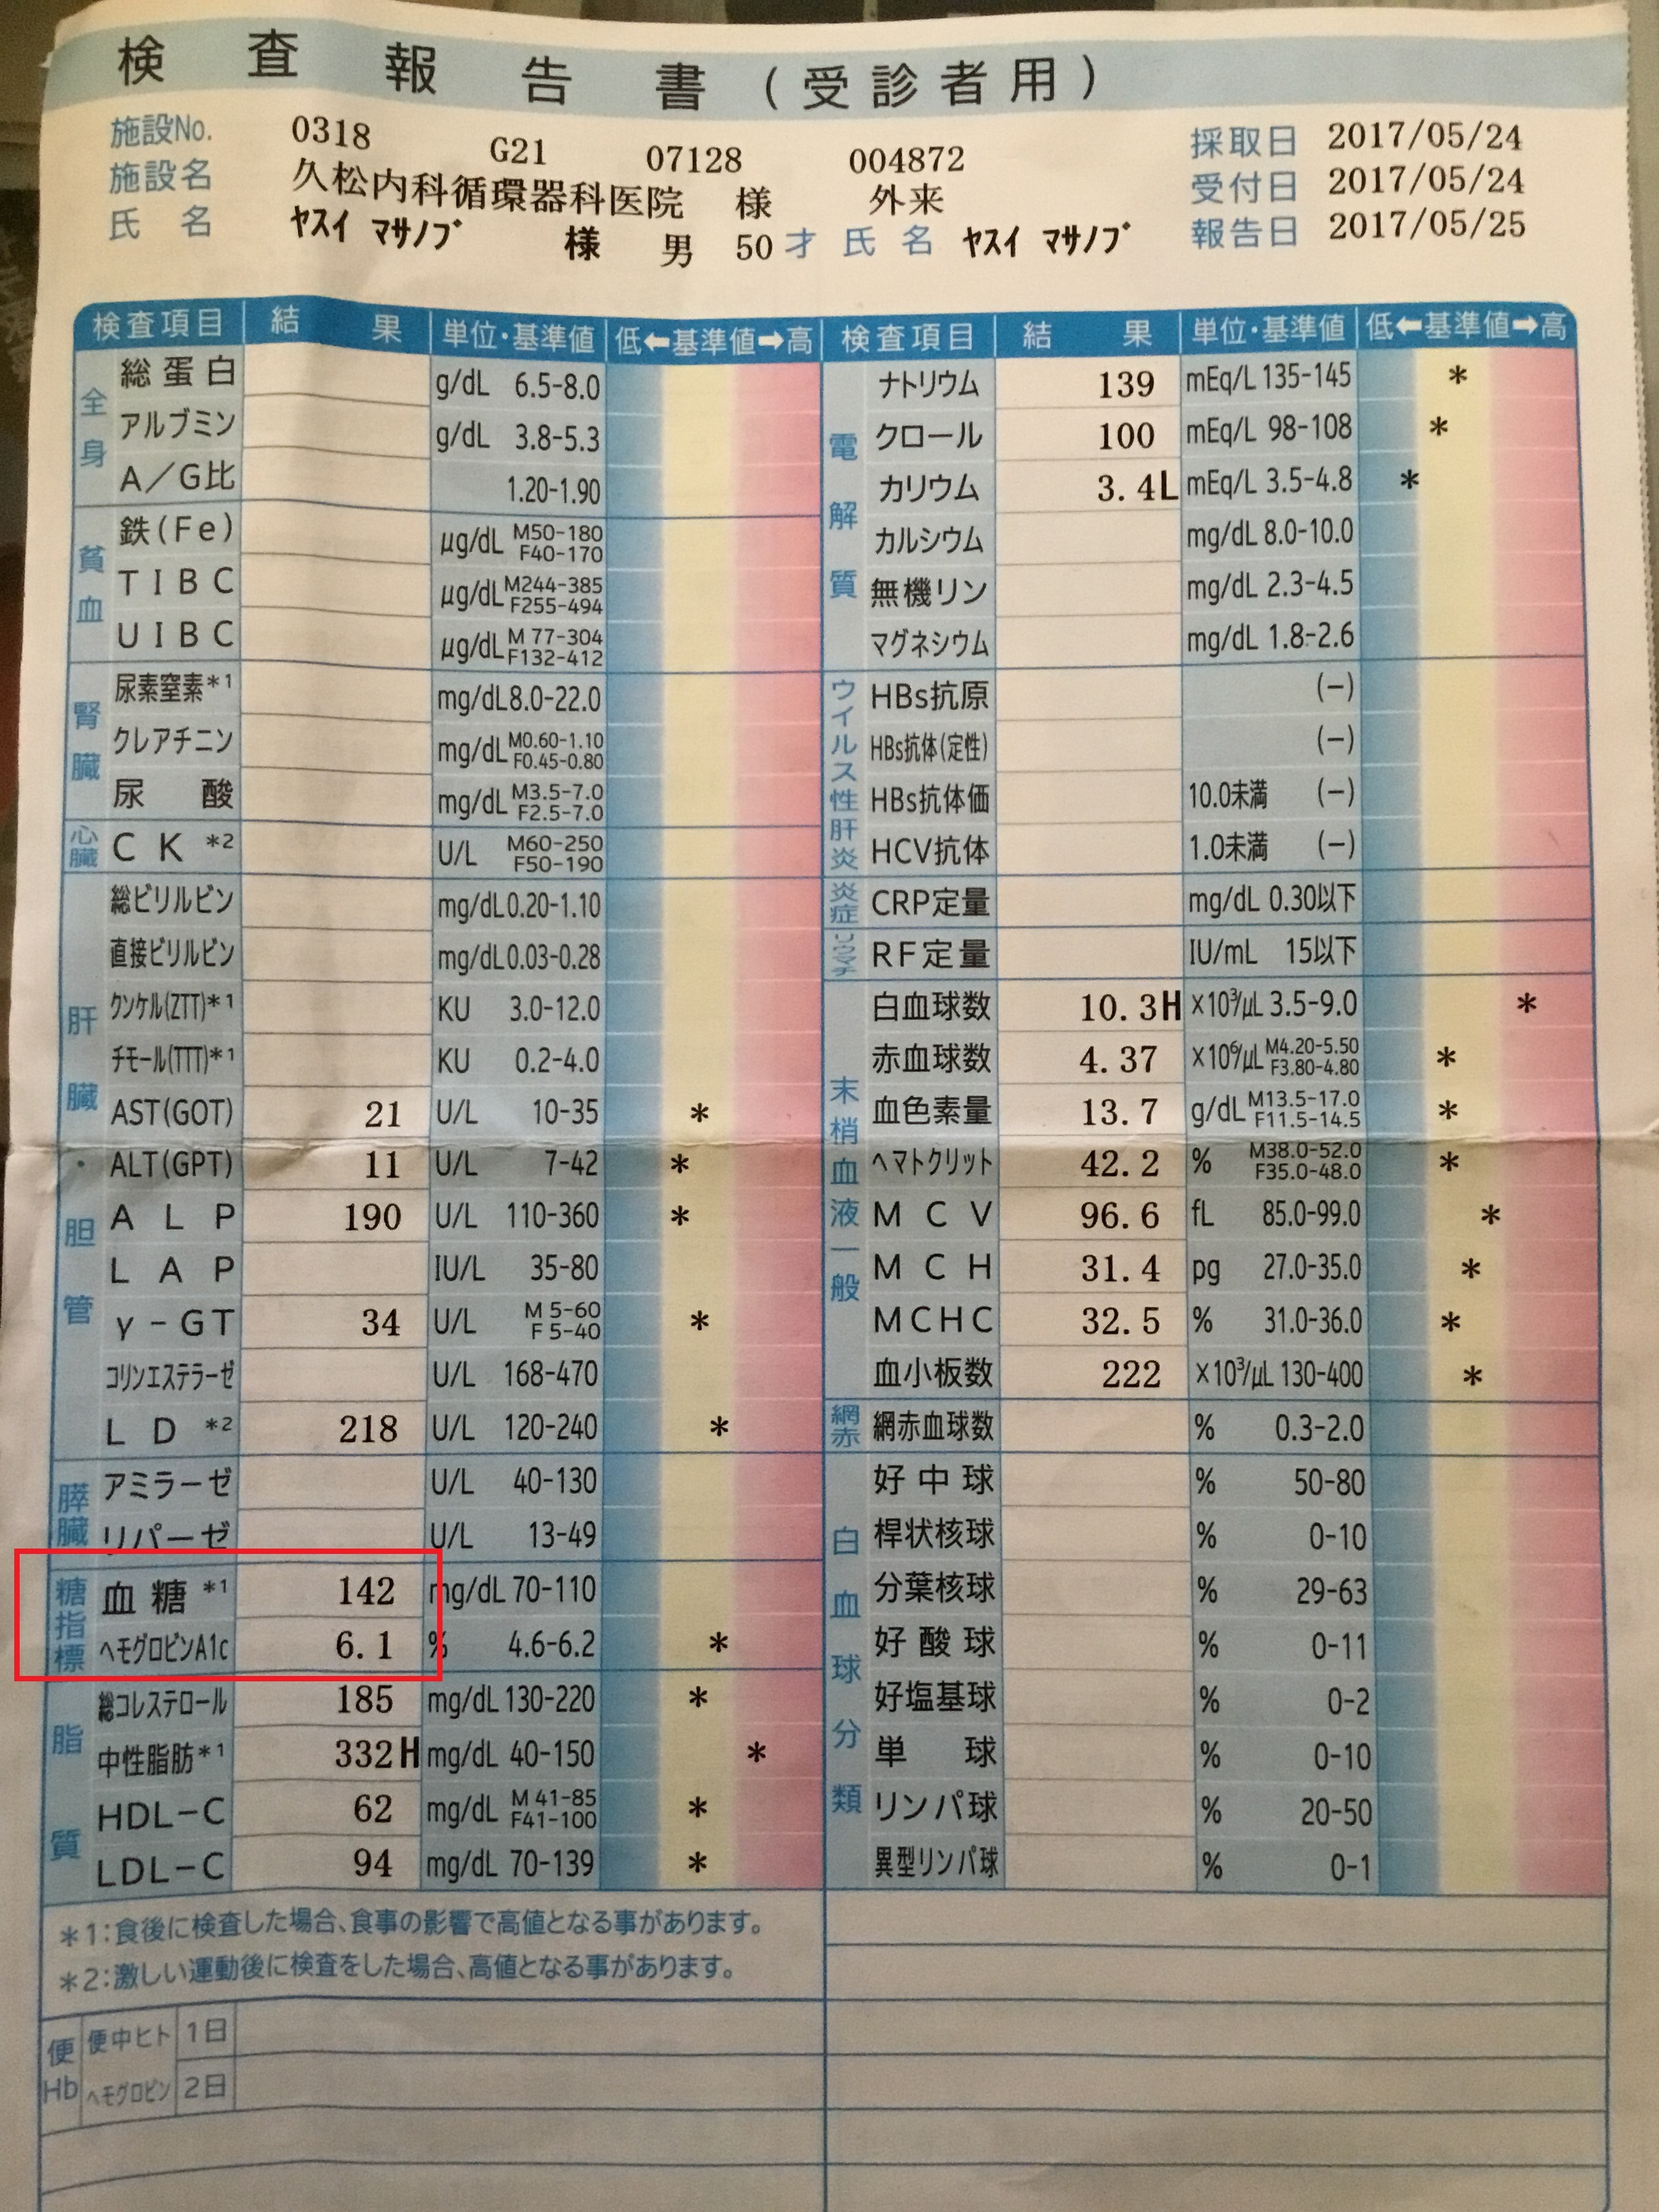 検査報告書(受診者用)
施設No. 0318 G21 07128 004872 採取日 2017/05/24
施設名 久松内科循環器科医院 様 外来 受付日 2017/05/24
氏名 ﾔｽｲ ﾏｻﾉﾌﾞ 様 男 50才 氏名 ﾔｽｲ ﾏｻﾉﾌﾞ 報告日 2017/05/25
検査項目 結果 単位・基準値 低⬅基準値➡高
全身
総蛋白 g/dL 6.5-8.0
アルブミン g/dL 3.8-5.3
A/G比 1.20-1.90
貧血
鉄(Fe) μg/dL M50-180 F40-170
TIBC μg/dL M244-385 F255-494
UIBC μg/dL M77-304 F132-412
腎臓
尿素窒素*1 mg/dL 8.0-22.0
クレアチニン mg/dL M0.60-1.10 F0.45-0.80
尿酸 mg/dL M3.5-7.0 F2.5-7.0
心臓
CK *2 U/L M60-250 F50-190
肝臓・胆管
総ビリルビン mg/dL 0.20-1.10
直接ビリルビン mg/dL 0.03-0.28
クンケル(ZTT)*1 KU 3.0-12.0
チモール(TTT)*1 KU 0.2-4.0
AST(GOT) 21 U/L 10-35 *
ALT(GPT) 11 U/L 7-42 *
ALP 190 U/L 110-360 *
LAP IU/L 35-80
γ-GT 34 U/L M 5-60 F 5-40 *
コリンエステラーゼ U/L 168-470
LD *2 218 U/L 120-240 *
膵臓
アミラーゼ U/L 40-130
リパーゼ U/L 13-49
糖指標
血糖*1 142 mg/dL 70-110
ヘモグロビンA1c 6.1 % 4.6-6.2 *
脂質
総コレステロール 185 mg/dL 130-220 *
中性脂肪*1 332H mg/dL 40-150 *
HDL-C 62 mg/dL M 41-85 F41-100 *
LDL-C 94 mg/dL 70-139 *
*1:食後に検査した場合、食事の影響で高値となる事があります。
*2:激しい運動後に検査をした場合、高値となる事があります。
便Hb 便中ヒトヘモグロビン 1日
2日
検査項目 結果 単位・基準値 低⬅基準値➡高
電解質
ナトリウム 139 mEq/L 135-145 *
クロール 100 mEq/L 98-108 *
カリウム 3.4L mEq/L 3.5-4.8 *
カルシウム mg/dL 8.0-10.0
無機リン mg/dL 2.3-4.5
マグネシウム mg/dL 1.8-2.6
ウイルス性肝炎
HBs抗原 (-)
HBs抗体(定性) (-)
HBs抗体価 10.0未満 (-)
HCV抗体 1.0未満 (-)
炎症
CRP定量 mg/dL 0.30以下
リウマチ
RF定量 IU/mL 15以下
末梢血液一般
白血球数 10.3H ×10³/μL 3.5-9.0 *
赤血球数 4.37 ×10⁶/μL M4.20-5.50 F3.80-4.80 *
血色素量 13.7 g/dL M13.5-17.0 F11.5-14.5 *
ヘマトクリット 42.2 % M38.0-52.0 F35.0-48.0 *
MCV 96.6 fL 85.0-99.0 *
MCH 31.4 pg 27.0-35.0 *
MCHC 32.5 % 31.0-36.0 *
血小板数 222 ×10³/μL 130-400 *
網赤
網赤血球数 % 0.3-2.0
白血球分類
好中球 % 50-80
桿状核球 % 0-10
分葉核球 % 29-63
好酸球 % 0-11
好塩基球 % 0-2
単球 % 0-10
リンパ球 % 20-50
異型リンパ球 % 0-1